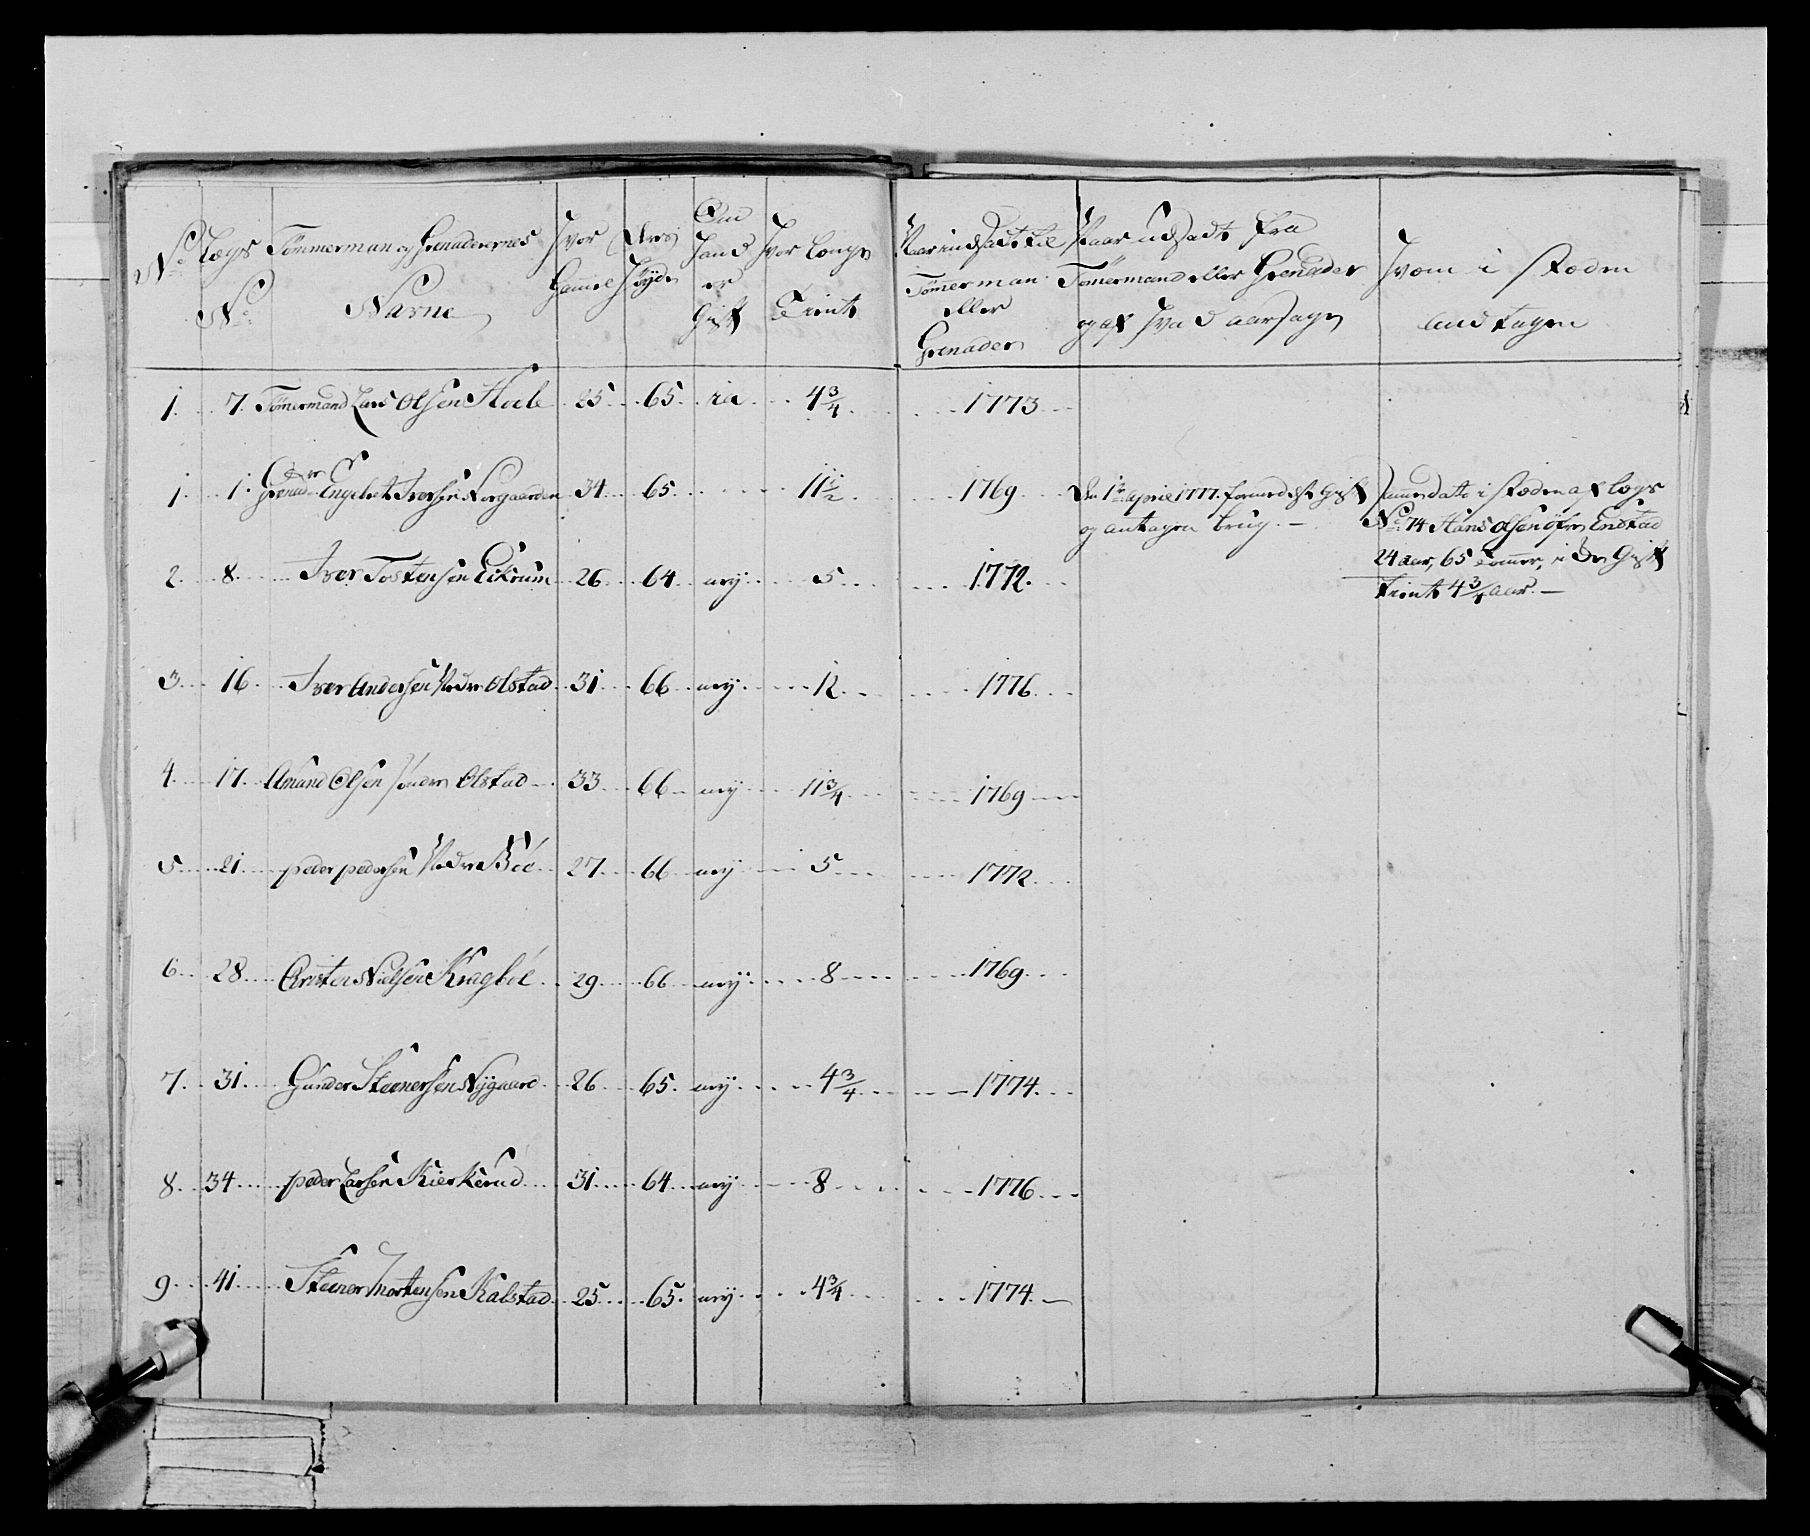 No Lægs No Tømmerman og Grenaderernes Nafne Hvor Gamel Deres Høyde Om Hand er Gift Hvor længe Tient Naar indsadt til Tømerman eller Grenader Naar udsadt fra Tømermand eller Grenader og af Hvad aarsage Hvem i stæden andtagen
1. 7. Tømermand Lars Olsen Hule 25 65 ia 4 3/4 1773
1. 1. Grenader Engebret Iversen Norgaarden 34 65 11 1/2 1769 Den 1te april 1777. formedelst Gift og antagen brug. Samme datto i stæden af lægs
No 74 Hans Olsen øfre Enstad
24 aar, 65 tommer, i Der Gift
tient 4 3/4 aar.
2. 8. Iver Tostensen Eikrum 26 64 nej 5 1772.
3. 16. Iver Andersen Nedre Olstad 31 66 nej 12 1776.
4. 17. Amund Olsen Søndre Olstad 33 66 nej 11 3/4 1769
5. 21. peder pedersen Nedre Bøe 27 66 nej 5 1772
6. 28. Christen Nielsen Kragbøe 29 66 nej 8 1769
7. 31. Gunder Steenersen Nygaard 26 65 nej 4 3/4 1774.
8. 34. peder Larsen Kierkerud 31 64 nej 8 1776
9. 41. Steener Mortensen Kalstad 25 65 nej 4 3/4 1774.